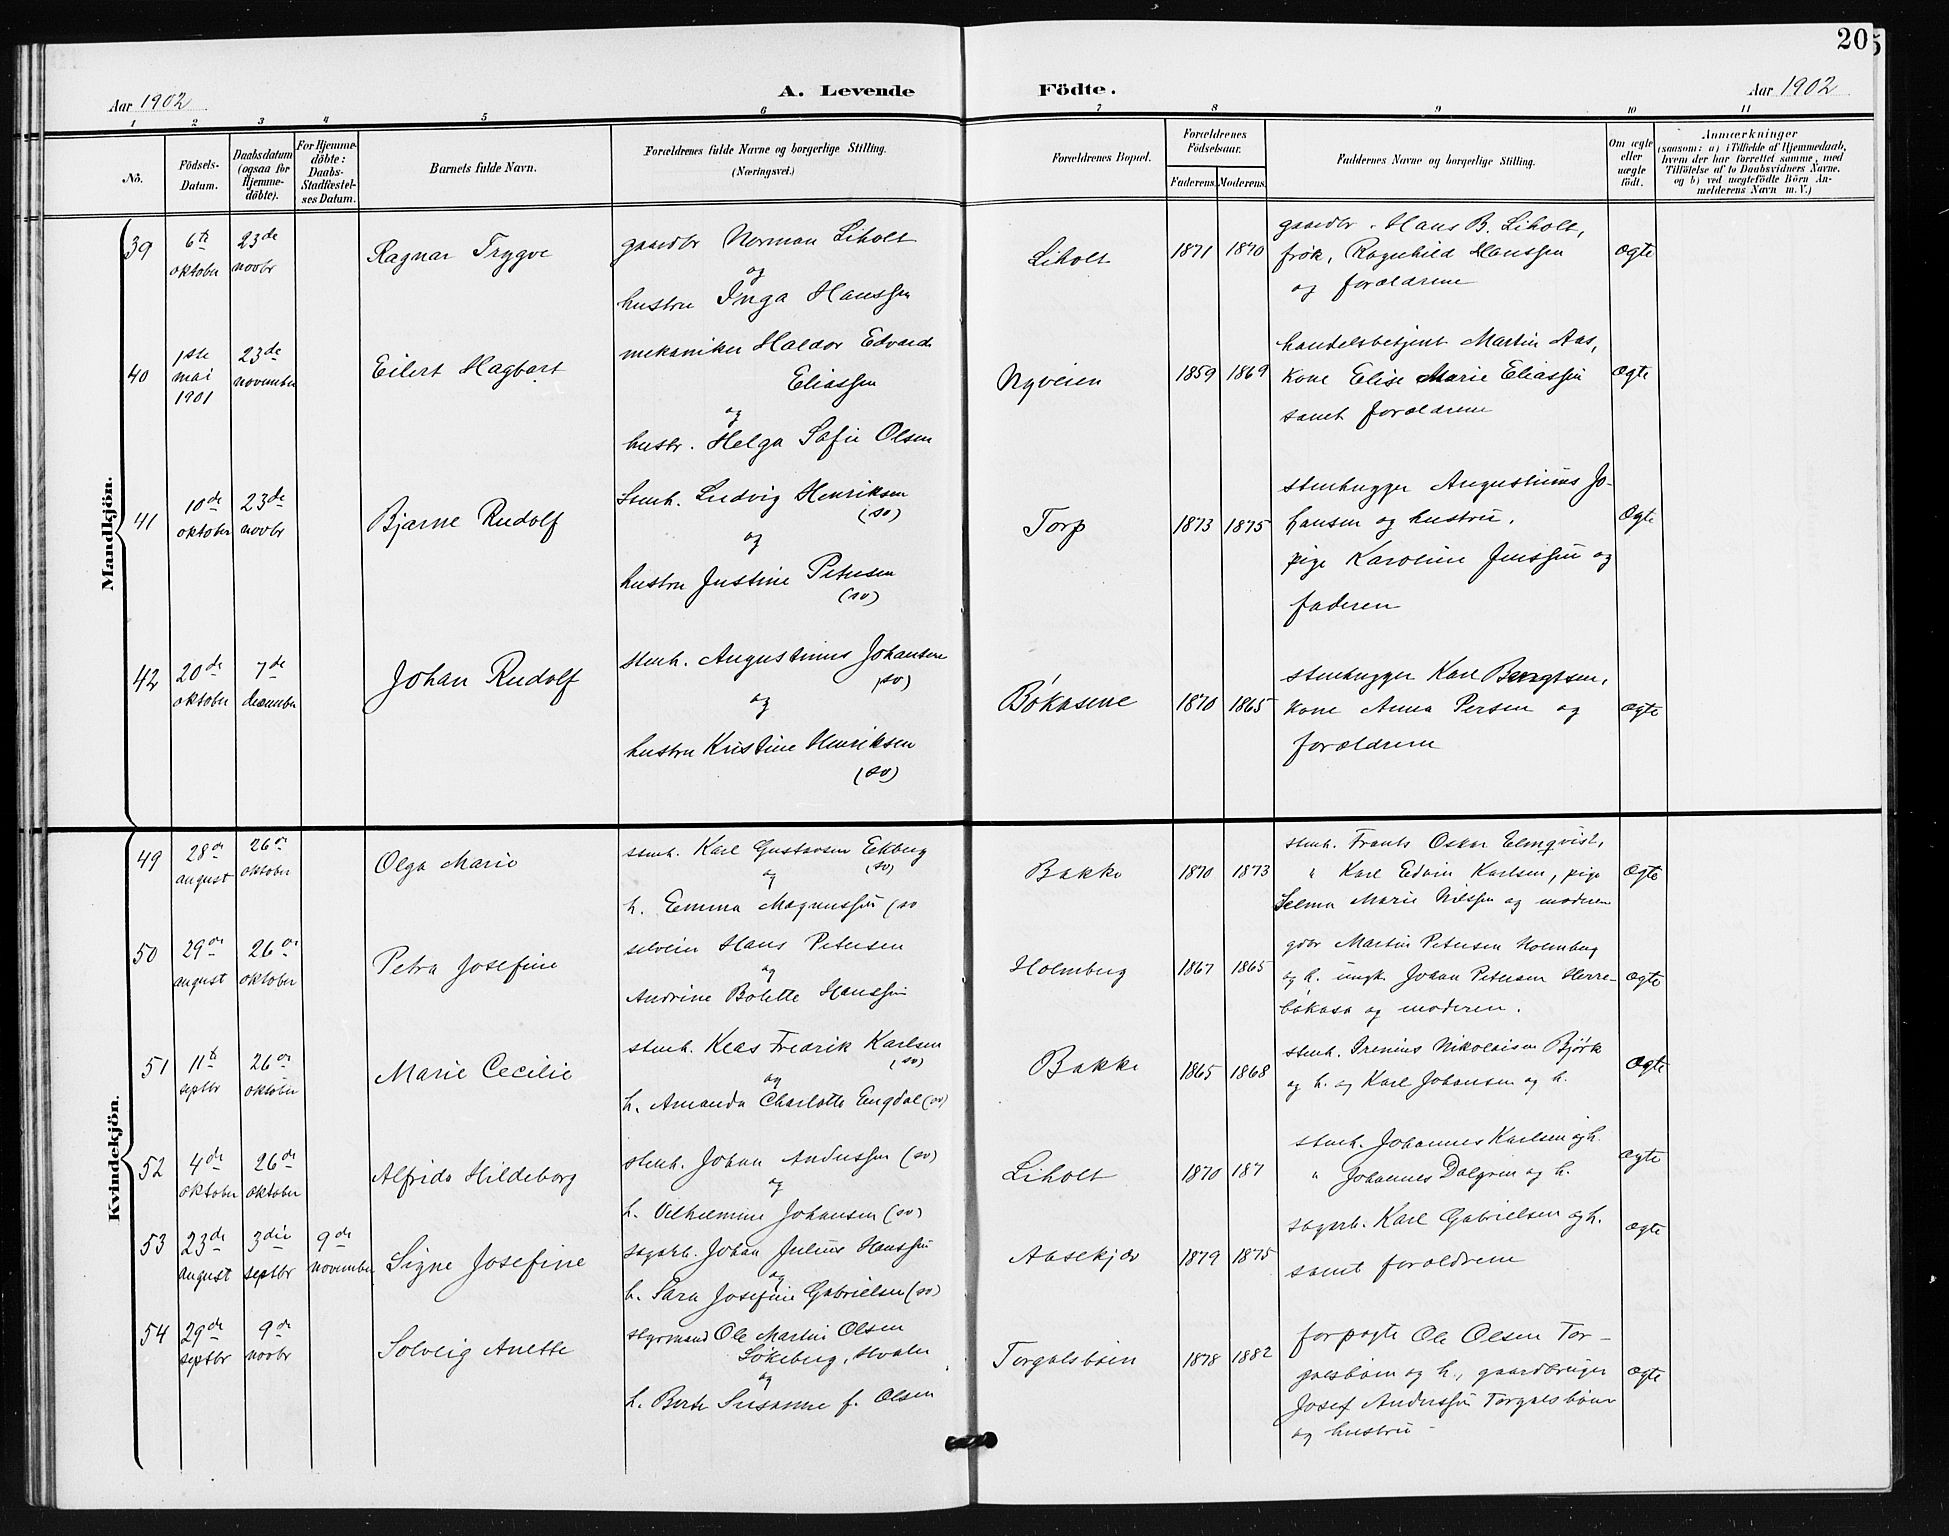 205
Aar 1902
A. Levende
Födte.
Aar 1902
1 2 3 4 5 6 7 8 9 10 11
Nö.
Födsels-
Datum.
Daabsdatum
(ogsaa for
Hjemme-
döbte).
For Hjemme-
döbte:
Daabs-
Stadfæstel-
ses Datum.
Barnets fulde Navn.
Forældrenes fulde Navne og borgerlige Stilling.
(Næringsvei.)
Forældrenes Bopæl.
Forældrenes
Födselsaar.
Faderens.
Moderens.
Faddernes Navne og borgerlige Stilling.
Om ægte
eller
uægte
födt.
Anmærkninger
(saasom: a) i Tilfælde af Hjemmedaab,
hvem der har forrettet samme, med
Tilföielse af to Daabsvidners Navne,
og b) ved uægtefödte Börn An-
melderens Navn m. V.)
Mandkjön.
39
6te
oktober
23de
novbr
Ragnar Trygve
gaardbr Norman Liholt
og
hustru Inga Hanssen
Liholt
1871
1870
gaardbr. Hans B. Liholt,
frøk, Ragnhild Hanssen
og forældrene
ægte
40
1ste
mai
1901
23de
november
Eilert Hagbart
mekaniker Haldor Edvard
Eliassen
og
hustr. Helga Sofie Olsen
Nyveien
1859
1869
handelsbetjent Martin Aas,
kone Elise Marie Eliassen
samt forældrene
ægte
41
10de
oktober
23de
novbr
Bjarne Rudolf
Stenh. Ludvig Henriksen
(sv)
og
hustru Justine Petersen
(sv)
Torp
1873
1875
stenhugger Augustinus Jo-
hansen og hustru,
pige Karoline Jenssen og
faderen
ægte
42
20de
oktober
7de
december
Johan Rudolf
stenh. Augustinus Johansen
(sv)
og
hustru Kristine Henriksen
(sv)
Bökasene
1870
1865
stenhugger Karl Bengtsen,
kone Anna Persen og
forældrene
ægte
Kvindekjön.
49
28de
august
26de
oktober
Olga Marie
stenh. Karl Gustavsen Ekberg
(sv)
og
h. Emma Magnussen (sv
Bakke
1870
1873
stenh. Frants Oskar Elmqvist,
" Karl Edvin Karlsen, pige
Selma Marie Nilssen og moderen
ægte
50
29de
august
26de
oktober
Petra Josefine
selveier Hans Petersen
og
Andrine Bolette Hanssen
Holmberg
1867
1865
gdbr Martin Petersen Holmberg
og h. ungk. Johan Petersen Herre-
bökasa og moderen.
ægte
51
11te
septbr
26de
oktober
Marie Cecilie
stenh. Klas Fredrik Karlsen
(sv)
og
h. Amanda Charlotte Engdal (sv)
Bakke
1865
1868
stenh. Irenius Nikolaisen Bjørk
og h. og Karl Johansen og h.
ægte
52
4de
oktober
26de
oktober
Alfrida Hildeborg
stenh. Johan Anderssen (sv)
og
h. Vilhelmine Johansen (sv)
Liholt
1870
187
stenh. Johannes Karlsen og h.
" Johannes Dalgren og h.
ægte
53
23de
august
3die
septbr
9de
november
Signe Josefine
sagarb. Johan Julius Hanssen
og
h. Sara Josefine Gabrielsen (sv)
Aasekjær
1879
1875
sagarb. Karl Gabrielsen og h.
samt forældrene
ægte
54
29de
septbr
9de
novbr
Solveig Anette
styrmand Ole Martin Olsen
Løkeberg, Hvaler
og
h. Berte Susanne f. Olsen
Torgalsbøen
1878
1882
forpagte Ole Olsen Tor-
galsbøen og h., gaardbruger
Josef Anderssen Torgalsbøen
og hustru
ægte